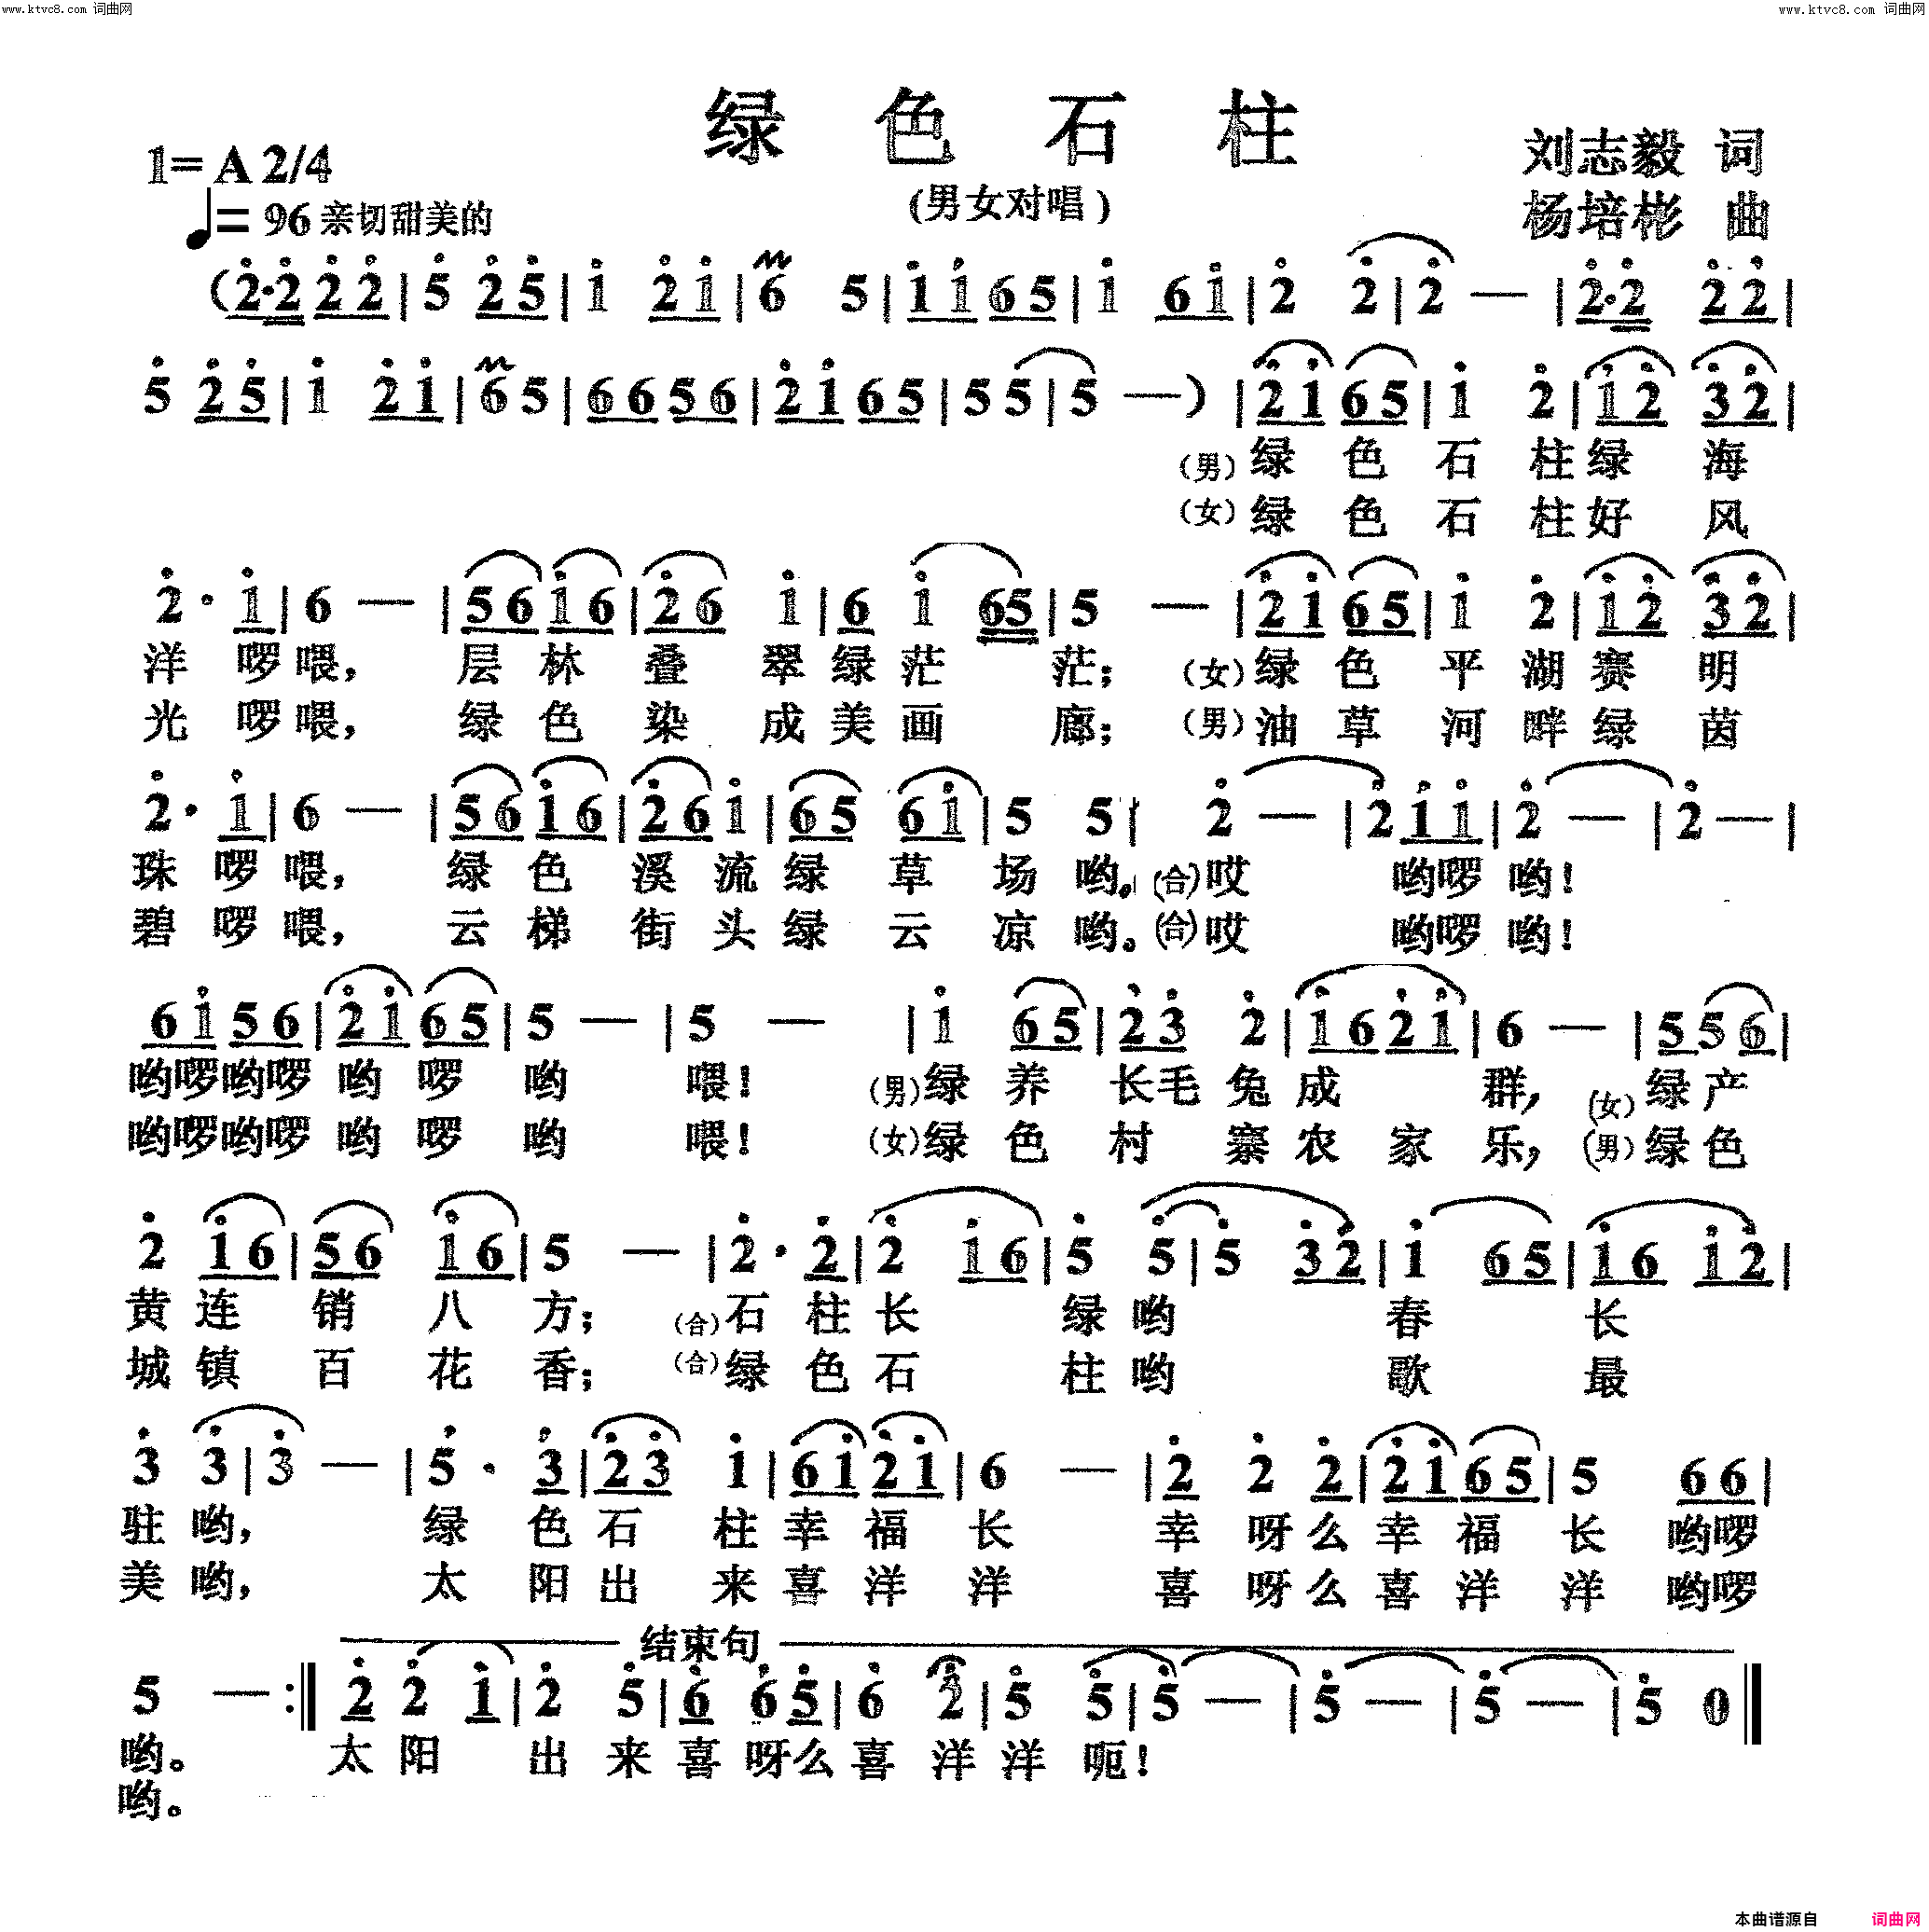 www.ktvc8.com 词曲网
www.ktvc8.com 词曲网
绿色石柱
1=A 2/4
刘志毅 词
(男女对唱)
♩=96 亲切甜美的
杨培彬 曲
(2̇·2̇ 2̇ 2̇ | 5̇ 2̇ 5̇ | 1̇ 2̇ 1̇ | 6 5 | 1̇ 1̇ 6 5 | 1̇ 6 1̇ | 2̇ 2̇ | 2̇ — | 2̇·2̇ 2̇ 2̇ |
5̇ 2̇ 5̇ | 1̇ 2̇ 1̇ | 6 5 | 6 6 5 6 | 2̇ 1̇ 6 5 | 5 5 | 5 — ) | 2̇ 1̇ 6 5 | 1̇ 2̇ | 1̇ 2̇ 3̇ 2̇ |
(男) 绿 色 石 柱 绿 海
(女) 绿 色 石 柱 好 风
2̇ · 1̇ | 6 — | 5 6 1̇ 6 | 2̇ 6 1̇ | 6 1̇ 6 5 | 5 — | 2̇ 1̇ 6 5 | 1̇ 2̇ | 1̇ 2̇ 3̇ 2̇ |
洋 啰 喂, 层 林 叠 翠 绿 茫 茫; (女) 绿 色 平 湖 赛 明
光 啰 喂, 绿 色 染 成 美 画 廊; (男) 油 草 河 畔 绿 茵
2̇ · 1̇ | 6 — | 5 6 1̇ 6 | 2̇ 6 1̇ | 6 5 6 1̇ | 5 5 | 2̇ — | 2̇ 1̇ 1̇ | 2̇ — | 2̇ — |
珠 啰 喂, 绿 色 溪 流 绿 草 场 哟。(合) 哎 哟啰 哟!
碧 啰 喂, 云 梯 街 头 绿 云 凉 哟。(合) 哎 哟啰 哟!
6 1̇ 5 6 | 2̇ 1̇ 6 5 | 5 — | 5 — | 1̇ 6 5 | 2̇ 3̇ 2̇ | 1̇ 6 2̇ 1̇ | 6 — | 5 5 6 |
哟啰哟啰 哟 啰 哟 喂! (男) 绿 养 长毛 兔 成 群, (女) 绿产
哟啰哟啰 哟 啰 哟 喂! (女) 绿 色 村 寨 农 家 乐, (男) 绿色
2̇ 1̇ 6 | 5 6 1̇ 6 | 5 — | 2̇ · 2̇ | 2̇ 1̇ 6 | 5̇ 5̇ | 5̇ 3̇ 2̇ | 1̇ 6 5 | 1̇ 6 1̇ 2̇ |
黄 连 销 八 方; (合) 石 柱 长 绿 哟 春 长
城 镇 百 花 香; (合) 绿 色 石 柱 哟 歌 最
3̇ 3̇ | 3̇ — | 5̇ · 3̇ | 2̇ 3̇ 1̇ | 6 1̇ 2̇ 1̇ | 6 — | 2̇ 2̇ 2̇ | 2̇ 1̇ 6 5 | 5 6 6 |
驻 哟, 绿 色 石 柱 幸 福 长 幸 呀 么 幸 福 长 哟啰
美 哟, 太 阳 出 来 喜 洋 洋 喜 呀 么 喜 洋 洋 哟啰
结束句
5 — :‖ 2̇ 2̇ 1̇ | 2̇ 5̇ | 6̇ 6̇ 5̇ | 6̇ 2̇ | 5̇ 5̇ | 5̇ — | 5̇ — | 5̇ — | 5̇ 0 ‖
哟。 太 阳 出 来 喜 呀么 喜 洋 洋 呃!
哟。
本曲谱源自 词曲网